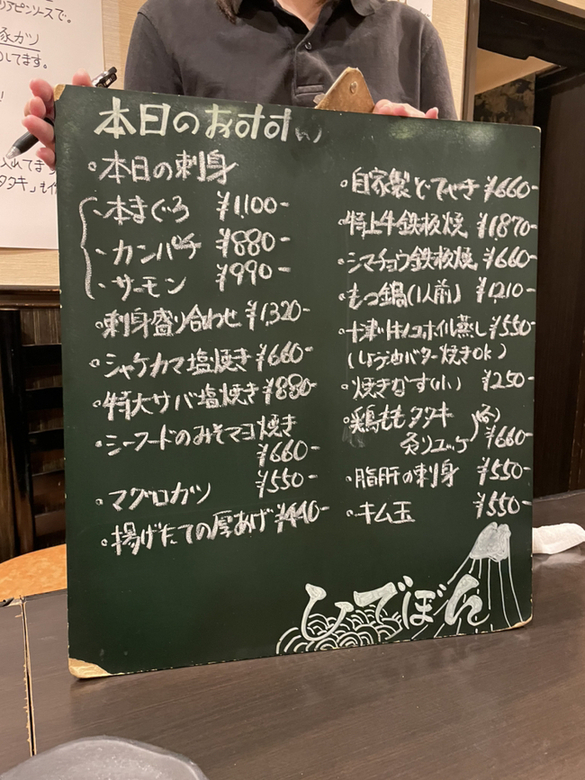 本日のおすすめ
・本日の刺身
本まぐろ ¥1,100-
カンパチ ¥880-
サーモン ¥990-
・刺身盛り合わせ ¥1,320-
・シャケカマ塩焼き ¥660-
・特大サバ塩焼き ¥880-
・シーフードのみそマヨ焼き
¥660-
・マグロカツ ¥550-
・揚げたての厚あげ ¥440-
・自家製どてやき ¥660-
・特上牛鉄板焼 ¥1,870-
・シマチョウ鉄板焼 ¥660-
・もつ鍋(1人前) ¥1,210-
・十津川キノコホイル蒸し ¥550-
(しょう油バター焼きOK)
・焼きなす(小) ¥250-
・鶏ももタタキ
炙りユッケ 各 ¥660-
・脂肝の刺身 ¥550-
・キム玉 ¥550-
ひでぼん
豚カツ
してます。